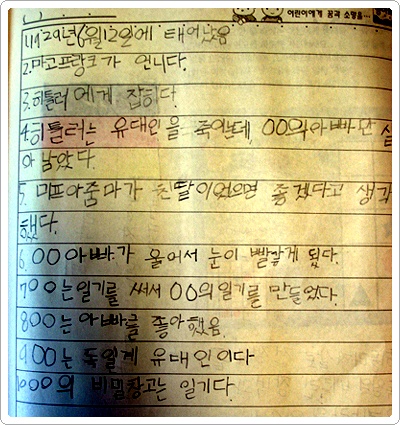 어린이에게 꿈과 소망을...
1.1929년6월12일에 태어났음
2.마고프랑크가 언니다.
3.히틀러에게 잡히다.
4.히틀러는 유대인을 죽였는데, 00의아빠만 살
아남았다.
5. 미프아줌마가 친딸이었으면 좋겠다고 생각
했다.
6.00아빠가 울어서 눈이 빨갛게 됬다.
7.00는일기를 써서 00의일기를 만들었다.
8.00는 아빠를 좋아했음.
9.00는 독일계 유대인이다
10.00의 비밀창고는 일기다.